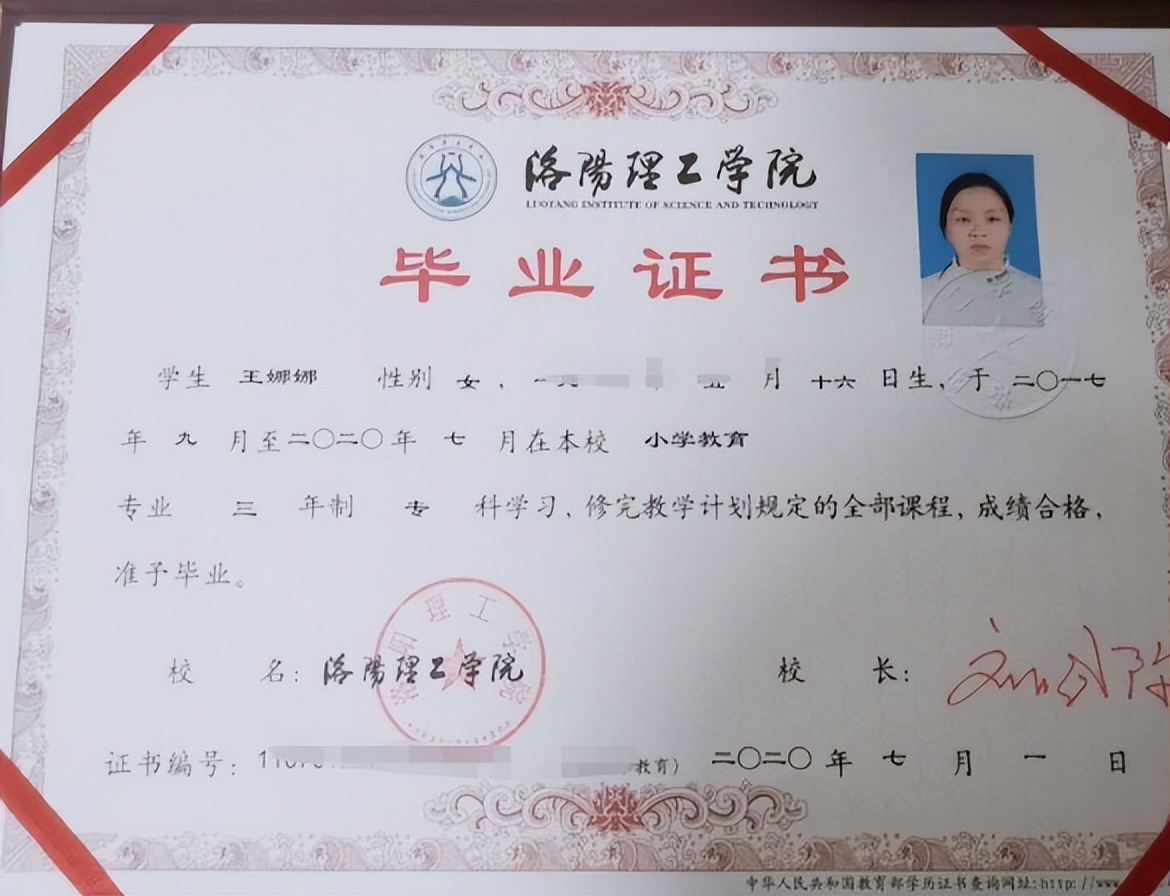 洛陽理工学院
LUOYANG INSTITUTE OF SCIENCE AND TECHNOLOGY
毕业证书
学生 王娜娜 性别 女，一九 五 月 十六 日生，于 二〇一七
年 九 月至二〇二〇年 七 月在本校 小学教育
专业 三 年制 专 科学习，修完教学计划规定的全部课程，成绩合格，
准予毕业。
校 名：洛陽理工学院 校 长：
证书编号： 教育） 二〇二〇 年 七 月 一 日
中华人民共和国教育部学历证书查询网址:http://www